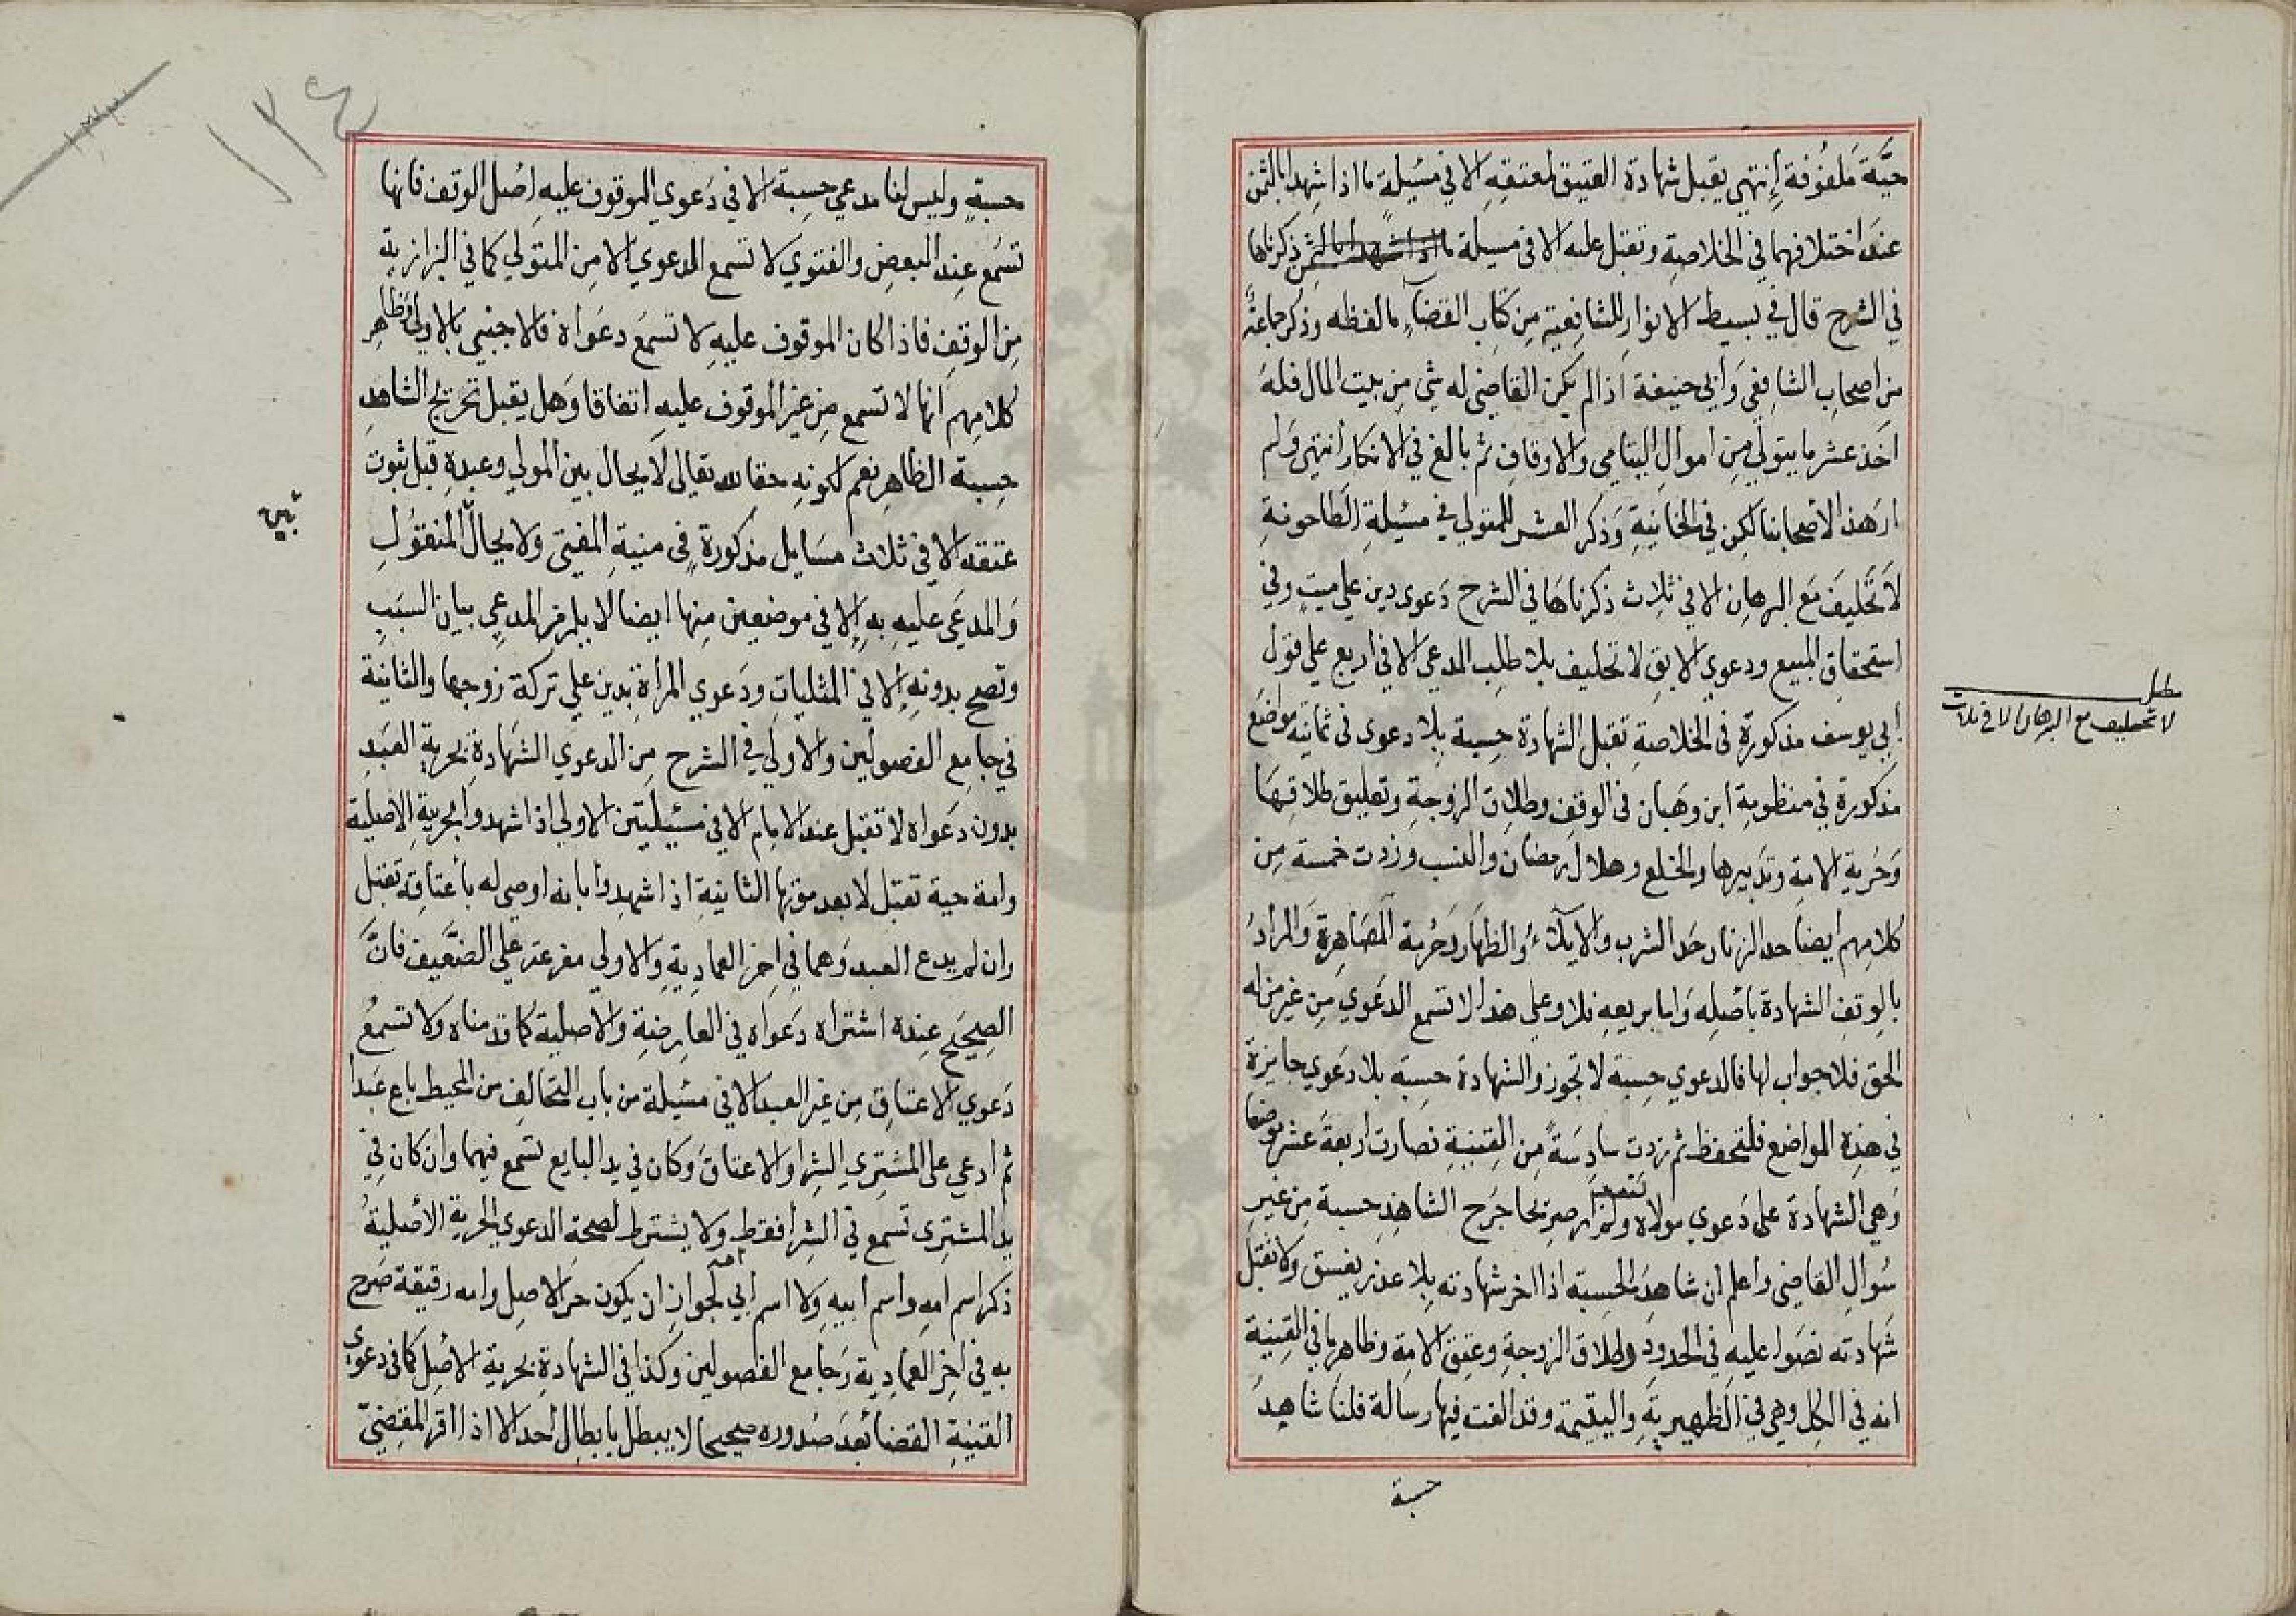 حبَّة مَلفُوفة إنتهي يقبل شهادة العتيق لمعتقِهِ الا في مسئيلة ما اذا شهدا بالثمن
عند اختلافهما في الخلاصة وتقبل عليه الا في مسيلة ما اذا شهدا بالثمن ذكرناها
في الشرح قال في بسيط الانوار للشافعية من كتاب القضاء مالفظه وذكر جماعة
من اصحاب الشافعي وابي حنيفة اذا لم يكن القاضي له شي من بيت المال فله
اخذ عشر ما يتولي من اموال اليتامي والاوقاف ثم بالغ في الانكار انتهي ولم
ار هذا لأصحابنا لكن في الخانية وذكر العشر للمتولي في مسئيلة الطاحونة
لا تحليف مع البرهان الا في ثلاث ذكرناها في الشرح دعوي دين علي ميت وفي
استحقاق المبيع ودعوي الابق لا تحليف بلا طلب المدعي الا في اربع علي قول
ابي يوسف مذكورة في الخلاصة تقبل الشهادة حسبة بلا دعوى في ثمانية مواضع
مذكورة في منظومة ابن وهبان في الوقف وطلاق الزوجة وتعليق طلاقها
وحرية الامة وتدبيرها والخلع وهلال رمضان والنسب وزدت خمسة من
كلامهم أيضا حد الزنا وحد الشرب والايلاء والظهار وحرمة المصاهرة والمراد
بالوقف الشهادة بأصله واما بريعه فلا وعلي هذا لا تسمع الدعوي من غير من له
الحق فلا جواب لها فالدعوي حسبة لا تجوز والشهادة حسبة بلا دعوي جايزة
في هذه المواضع فلتحفظ ثم زدت سادسة من القنية فصارت اربعة عشر موضعا
وهي الشهادة على دعوي مولاه ولم ار صريحا جرح الشاهد حسبة من غير
سوال القاضي واعلم ان شاهد الحسبة اذا اخر شهادته بلا عذر يفسق ولا تقبل
شهادته نصوا عليه في الحدود وطلاق الزوجة وعتق الامة وظاهر ما في القنية
انه في الكل وهي في الظهيرية واليتيمة وقد الفت فيها رسالة فلنا شاهد
حسبة
مطلب
لا تحليف مع البرهان الا في ثلاث
١٣٤
حسبة وليس لنا مدعي حسبة الا في دعوي الموقوف عليه اصل الوقف فانها
تسمع عند البعض والفتوي لا تسمع الدعوي الا من المتولي كما في البزازية
من الوقف فاذا كان الموقوف عليه لا تسمع دعواه فالاجنبي بالاولي وظاهر
كلامهم انها لا تسمع من غير الموقوف عليه اتفاقا وهل يقبل تجريح الشاهد
حسبة الظاهر نعم لكونه حقا لله تعالي لا يحال بين المولي وعبده قبل ثبوت
عتقه الا في ثلاث مسايل مذكورة في منية المفتي ولا يحال المنقول
والمدعي عليه به إلا في موضعين منها ايضا لا يلزم المدعي بيان السبب
وتصح بدونه إلا في المثليات ودعوي المراة بدين علي تركة زوجها والثانية
في جامع الفصولين والاولي في الشرح من الدعوي الشهادة بحرية العبد
بدون دعواه لا تقبل عند الامام الا في مسئيلتين الاولي اذا شهدوا بحرية الاصلية
وامة حية تقبل لا بعد موتها الثانية اذا شهدوا بانه اوصي له باعتاقه تقبل
وان لم يدع العبد وهما في اخر العمادية والاولي مفرعة علي الضعيف فان
الصحيح عنده اشتراط دعواه في العارضية والاصلية كما قدمناه ولا تسمع
دعوي الاعتاق من غير العبد الا في مسئيلة من باب التحالف من المحيط باع عبدا
ثم ادعي على المشتري الشرا والاعتاق وكان في يد البايع تسمع فيهما وان كان في
يد المشتري تسمع في الشرا فقط ولا يشترط لصحة الدعوي الحرية الأصلية
ذكر اسم امه واسم ابيه ولا اسم ابي امه لجواز ان يكون حر الاصل وامه رقيقة صرح
به في اخر العمادية وجامع الفصولين وكذا في الشهادة بحرية الاصل كما في دعوي
القنية القضا بعد صدوره صحيحا لا يبطل بابطال احد الا اذا اقر المقضي